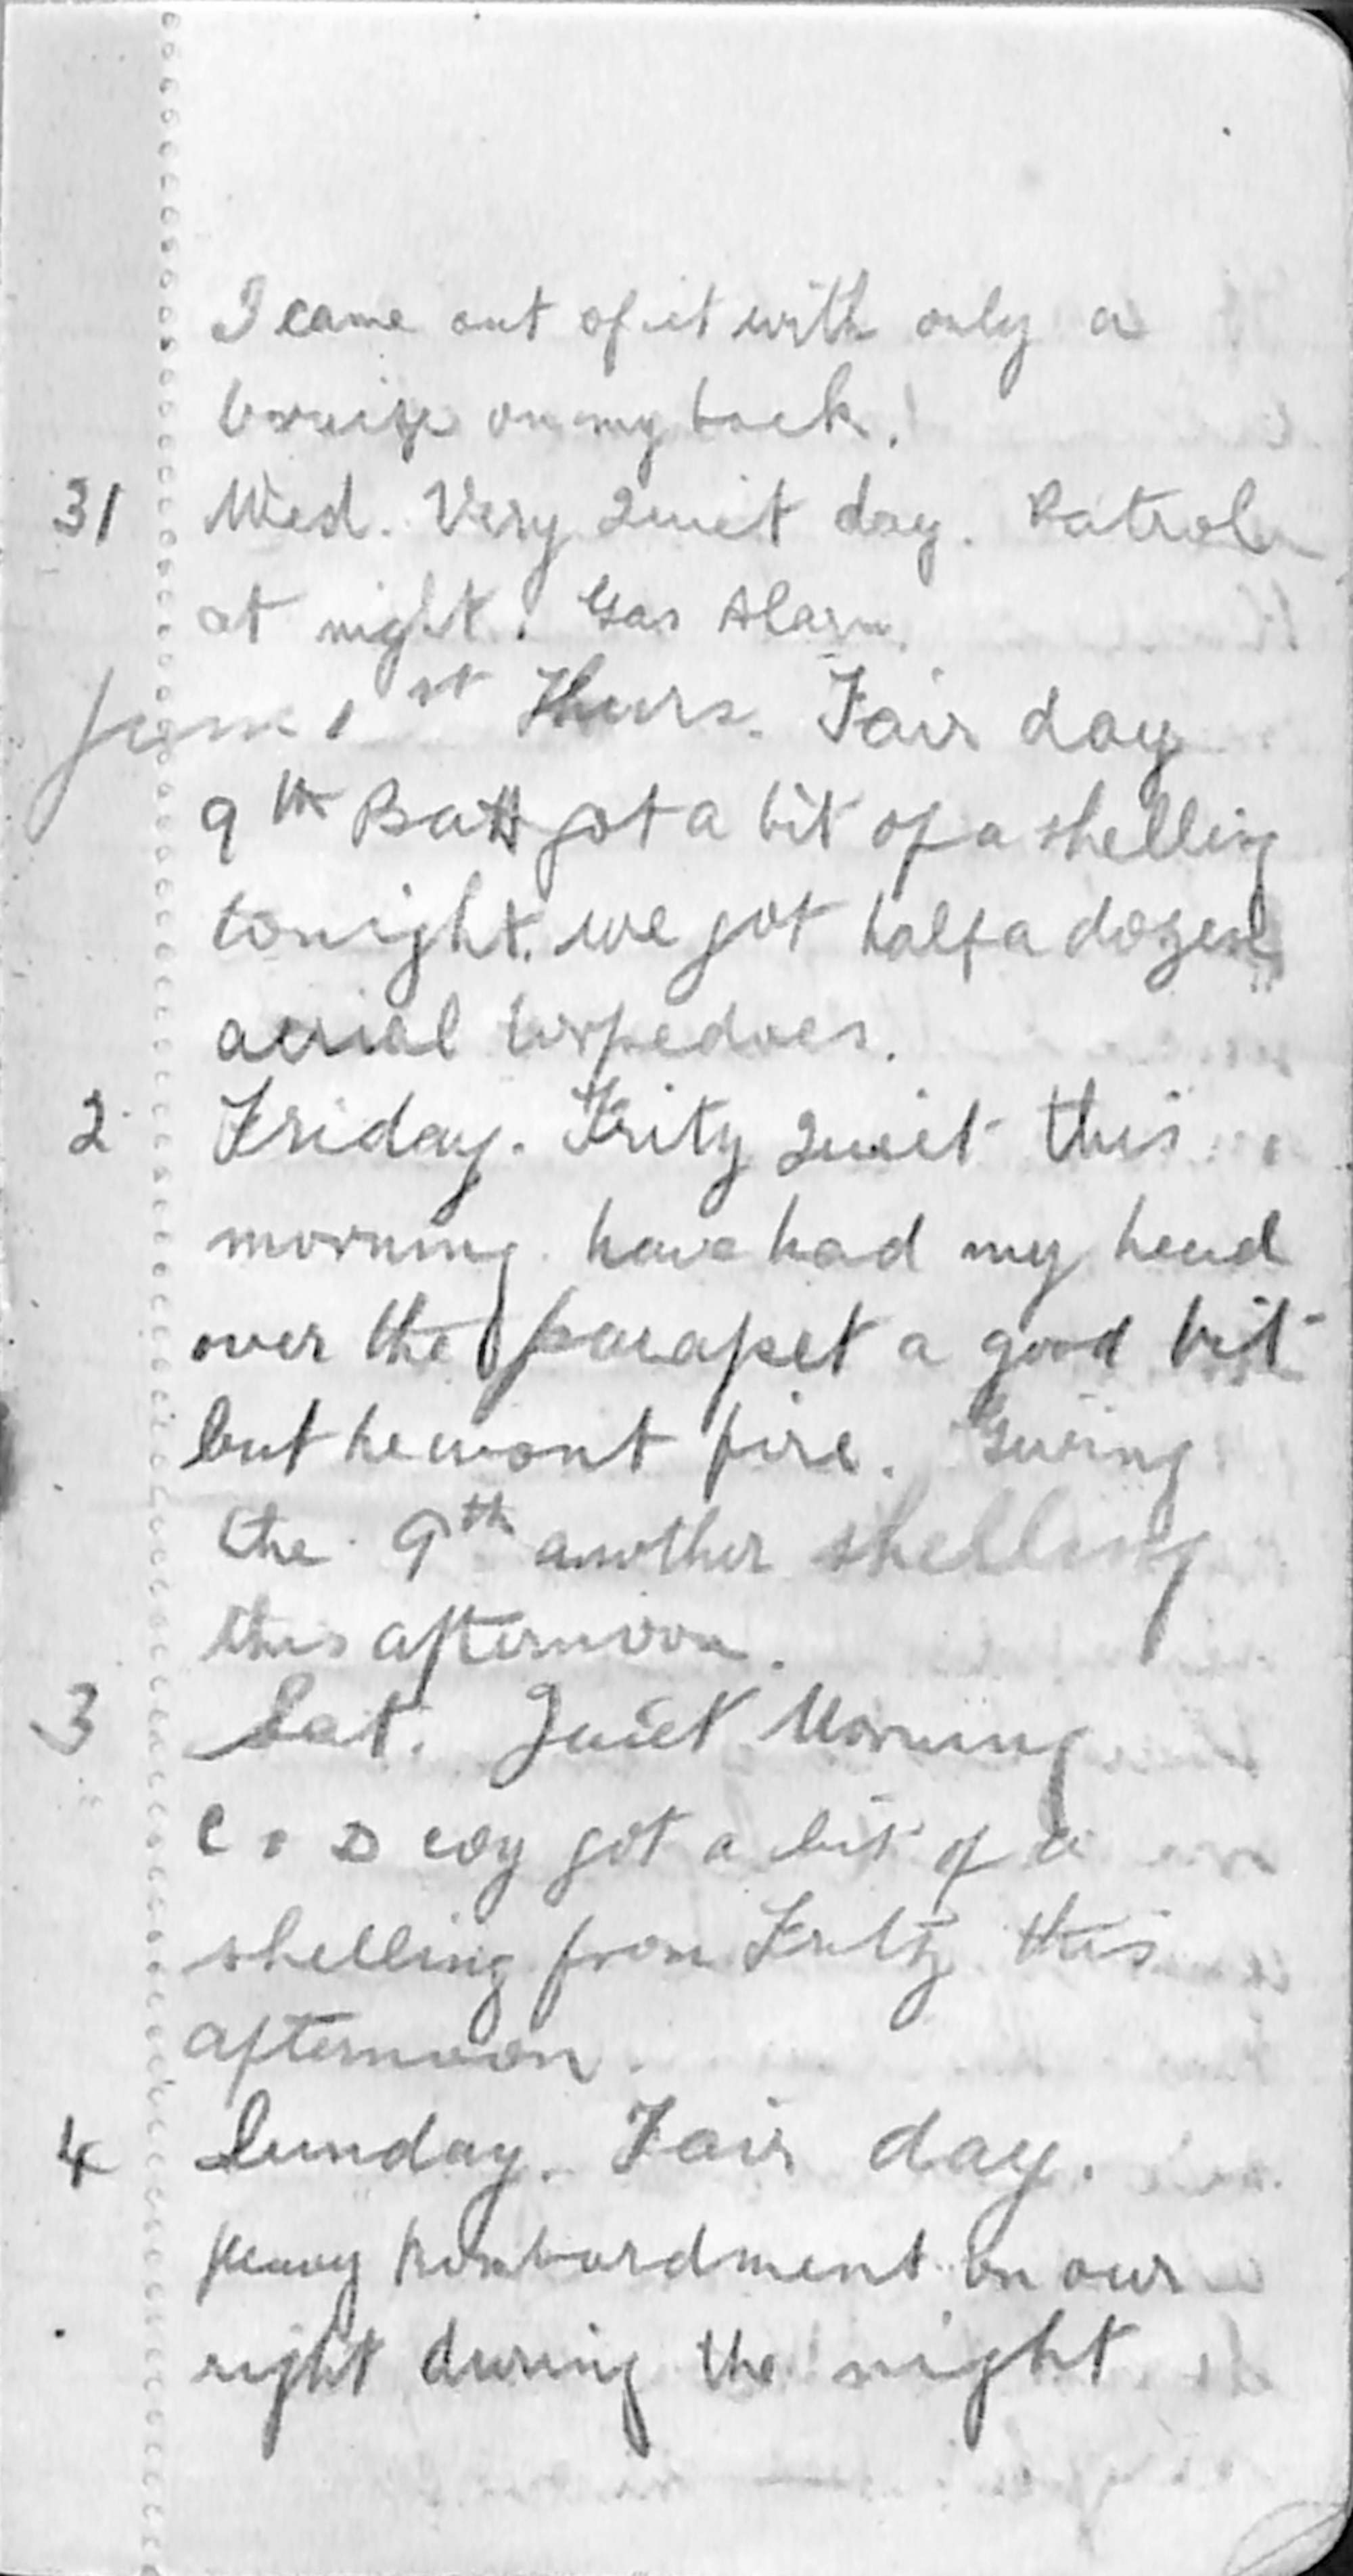 I came out of it with only a
bruise on my back!
31 Wed. Very Quiet day. Patrol
at night! Gas Alarm.
June 1st Thurs. Fair day
9th Batt got a bit of a shelling
tonight. we got half a dozen
aerial torpedoes.
2 Friday. Fritz Quiet this
morning. have had my head
over the parapet a good bit
but he wont fire. Giving
the 9th another shelling
this afternoon.
3 Sat. Quiet Morning
C & D coy got a bit of a
shelling from Fritz this
afternoon.
4 Sunday. Fair day.
Heavy bombardment on our
right during the night